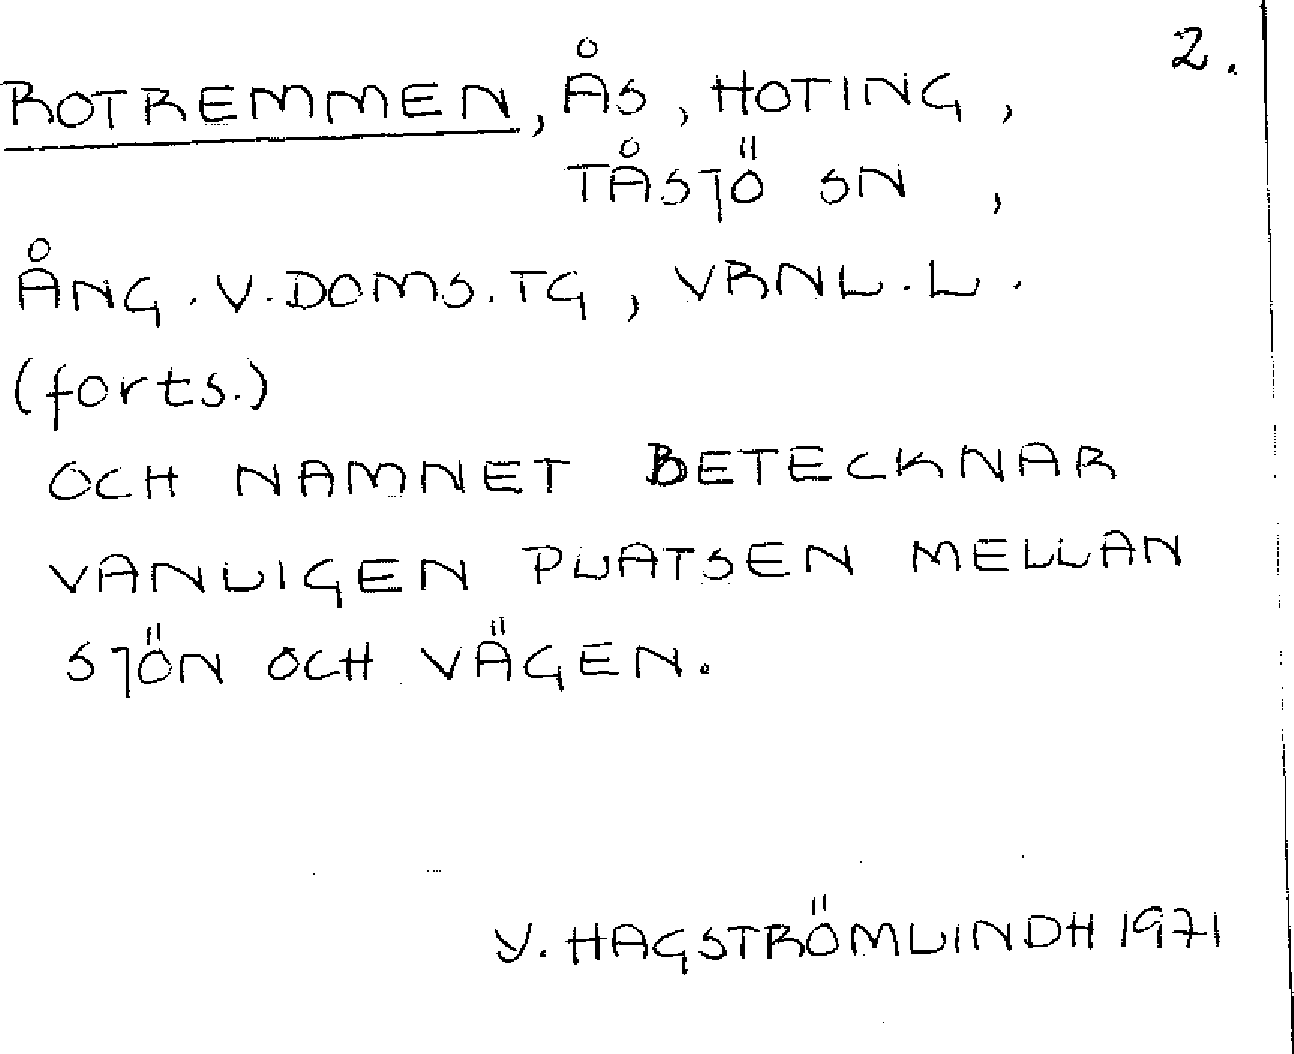 2.
ROTREMMEN, ÅS, HOTING,
TÅSJÖ SN,
ÅNG. V. DOMS. TG, VRNL. L.
(forts.)
OCH NAMNET BETECKNAR
VANLIGEN PLATSEN MELLAN
SJÖN OCH VÄGEN.
Y. HAGSTRÖMLINDH 1971